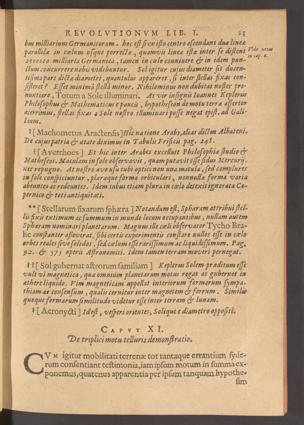 REVOLUTIONUM LIB. I. 23
bus milliarium Germanicorum. hoc est si ex isto centro ascendant duæ lineæ
parallelæ in cœlum usque porrectæ, quamvis lineæ istæ inter se distent
2000000 milliaria Germanica, tamen in cœlo coniuncte & in idem pun-
ctum concurrere nobis videbuntur. Sol igitur cujus diameter sit ducen-
tesima pars dictæ diametri, quantulus appareret, si inter stellas fixas con-
sisteret? Esset minimâ stellâ minor. Nihilominus non dubitat noster pro-
nuntiare, Totum à Sole illuminari. At vir insignis Ioannes Keplerus
Philosophus & Mathematicus præcip. hypotheseon de motu terræ assertor
acerrimus, stellas fixas à Sole nostro illuminari posse negat epist. ad Gali-
læum.
Vide notas
in cap. 6.
[Machometus Aractensis] Hic natione Arabs, alias dictus Albateni.
De cujus patria & ætate diximus in Tabulis Frisiis pag. 248.
[Averrhoes] Et hic inter Arabes excelluit Philosophiæ studio &
Matheseos. Maculam in sole observavit, quam putavit esse sidus Mercurij.
nec repugno. At nostro ævo usu tubi optici non una macula, sed complures
in sole conspiciuntur, pleræque formæ orbicularis, nonnullæ formæ variâ
abeuntes ac redeuntes. Idem tubus etiam plura in cœlo detexit ignorata Co-
pernico & toti antiquitati.
** [Stellarum fixarum sphæra] Notandum est, Sphæram attribui stel-
lis fixis extimam ac summam in mundo locum occupantibus, nullam autem
Sphæram nominari planetarum. Magnus ille cœli observator Tycho Bra-
he constanter asseverat, sibi certis experimentis constare nullos esse in cœlo
orbes reales sive solidos, sed cœlum esse rarissimum ac liquidissimum. Pag.
92. & 573 operis Astronomici. Idem tamen terram moveri pernegat.
[Sol gubernat astrorum familiam] Keplerus Solem proditum esse
vult vi magneticâ, quâ omnium planetarum motus regat ac gubernet in
æthere liquido. Vim magneticam appellat interiorum formarum sympa-
thiam ac consensum, qualis cernitur inter magnetem & ferrum. Similis
quoque formarum similitudo videtur esse inter terram & lunam.
[Acronycti] Id est, vesperi orientes, Solique è diametro oppositi.
CAPUT XI.
De triplici motu telluris demonstratio.
CUM igitur mobilitati terrenæ tot tantaque errantium syde-
rum consentiant testimonia, iam ipsum motum in summa ex-
ponemus, quatenus apparentia per ipsum tanquam hypothe-
sim